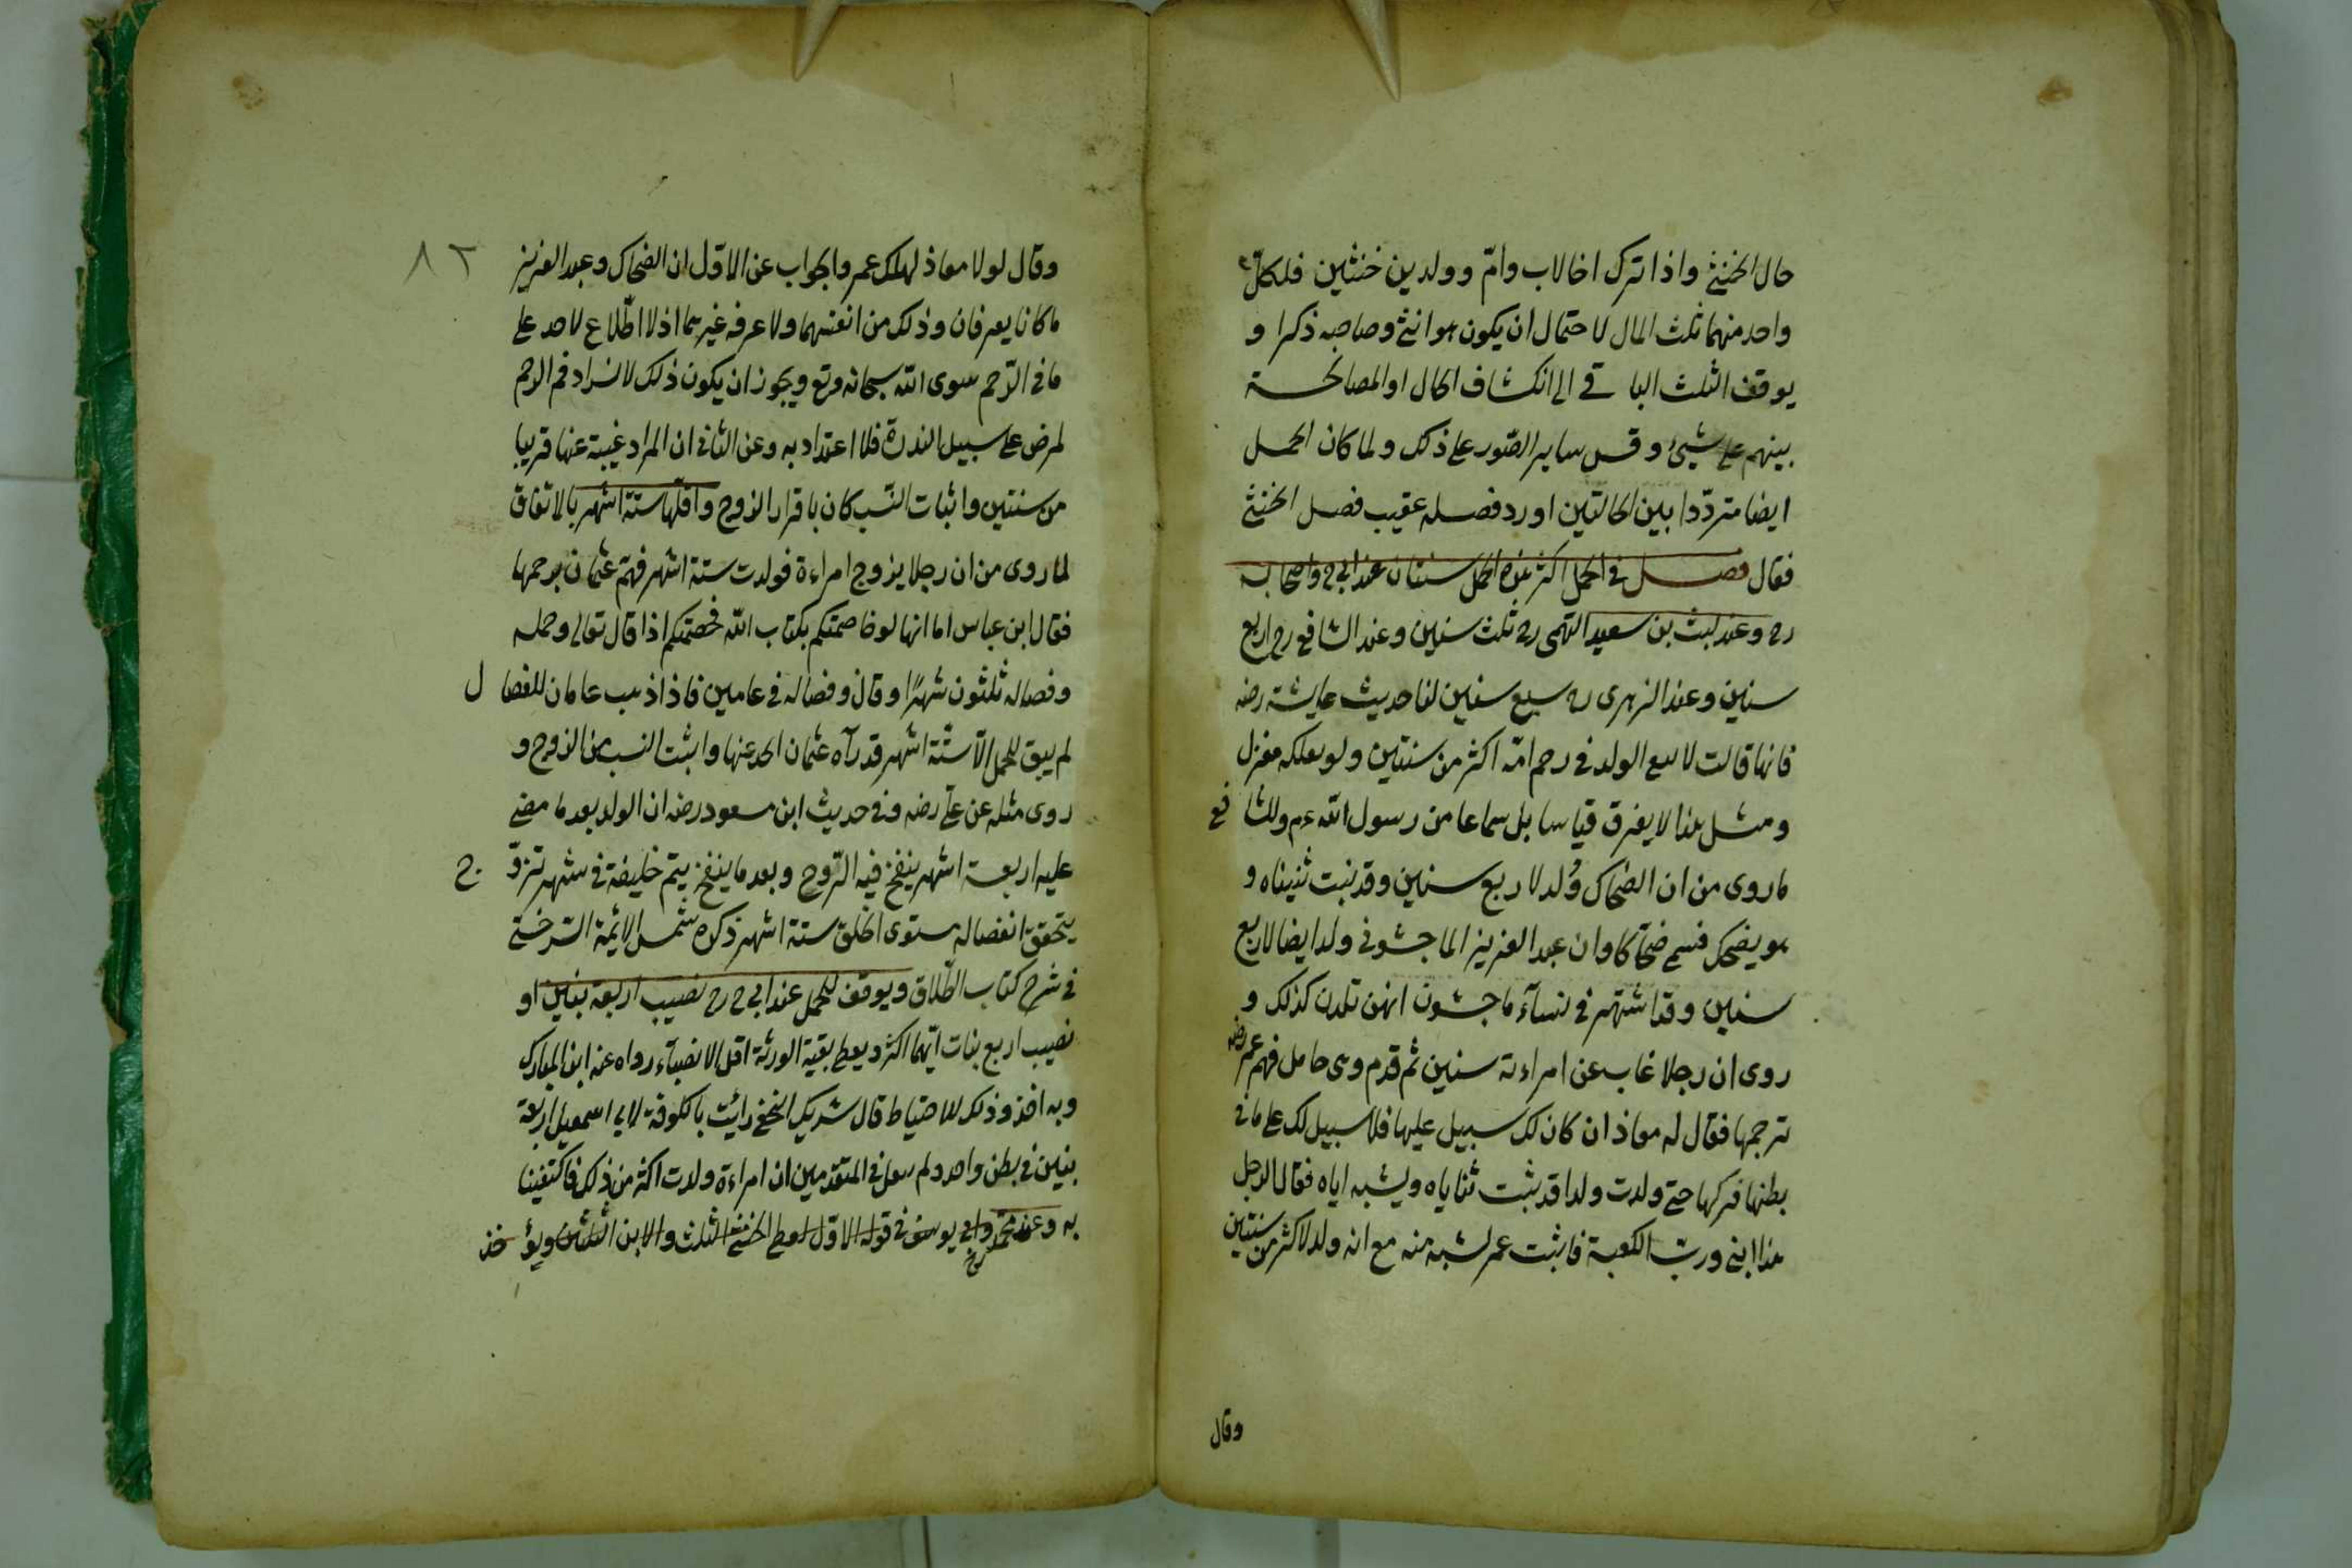 حال الخنثى واذا ترك اخا لاب وامّ وولدين خنثيين فلكلّ
واحد منهما ثلث المال لاحتمال ان يكون هو انثى وصاحبه ذكرا و
يوقف الثلث الباقى الى انكشاف الحال او المصالحة
بينهم على شيئ وقس ساير الصّور على ذلك ولما كان الحمل
ايضا متردّدا بين الحالتين اورد فصله عقيب فصل الخنثى
فقال فصل فى الحمل اكثر مدة الحمل سنتان عند ابى ح واصحابه
رح وعند ليث بن سعيد التهمى رح ثلث سنين وعند الشافعى رح اربع
سنين وعند الزهرى رح سبع سنين لنا حديث عايشة رضه
فانها قالت لا يبقى الولد فى رحم امّه اكثر من سنتين ولو بفلكة مغزل
ومثل هذا لا يعرف قياسا بل سماعا من رسول الله عم وللشافعى
ما روى من ان الضحاك وُلد لاربع سنين وقد نبت ثنيتاه و
هو يضحك فسمى ضحّاكا وان عبد العزيز الماجشونى ولد ايضا لاربع
سنين وقد اشتهر فى نسآء ماجشون انهن تلدن كذلك و
روى ان رجلا غاب عن امراءته سنين ثم قدم وهى حامل فهمّ عمر رضه
ترجمها فقال له معاذ ان كان لك سبيل عليها فلا سبيل لك على ما فى
بطنها فتركها حتى ولدت ولدا قد نبتت ثناياه ويشبه اياه فقال الرجل
هذا ابنى وربّ الكعبة فاثبت عمر لشبهه منه مع انه ولد لاكثر من سنتين
وقال
٨٢
وقال لولا معاذ لهلك عمر والجواب عن الاوّل ان الضحاك وعبد العزيز
ما كانا يعرفان وذلك من انفسهما ولا عرفه غيرهما اذ لا اطّلاع لاحد على
ما فى الرّحم سوى الله سبحانه وتع ويجوز ان يكون ذلك لانسداد فم الرحم
لمرض على سبيل الندرة فلا اعتداد به وعن الثانى ان المراد غيبة عنها قريبا
من سنتين واثبات النسب كان باقرار الزوج واقلّها ستة اشهر بالاتفاق
لما روى من ان رجلا يزوج امراءة فولدت ستة اشهر فهمّ عثمان برجمها
فقال ابن عباس اما انها لو خاصمتكم بكتاب الله لخصمتكم اذا قال تعالى وحمله
وفصاله ثلثون شهرًا وقال وفصاله فى عامين فاذا ذهب عامان للفصال
لم يبق للحمل الّا ستّة اشهر فدرأه عثمان الحد عنها واثبت النسب من الزوج و
روى مثله عن علىّ رضه وفى حديث ابن مسعود رضه ان الولد بعد ما مضى
عليه اربعة اشهر ينفخ فيه الرّوح وبعد ما ينفخ يتم خليفة فى شهر
يتحقق انفصاله مستوى الخلق ستة اشهر ذكره شمس الايمّة السّرخسى
فى شرح كتاب الطّلاق ويوقف للحمل عند ابى ح رح نصيب اربعة بنين او
نصيب اربع بنات ايّهما اكثر ويعطى بقية الورثة اقل الانصبآء رواه عنه ابن المبارك
وبه اخذ وذلك للاحتياط قال شريك النخعى رائيت بالكوفة لابى اسمعيل اربعة
بنين فى بطن واحد ولم ينقل فى المتقدّمين ان امراءة ولدت اكثر من ذلك فاكتفينا
به وعند محمد رح وابى يوسف فى قوله الاوّل